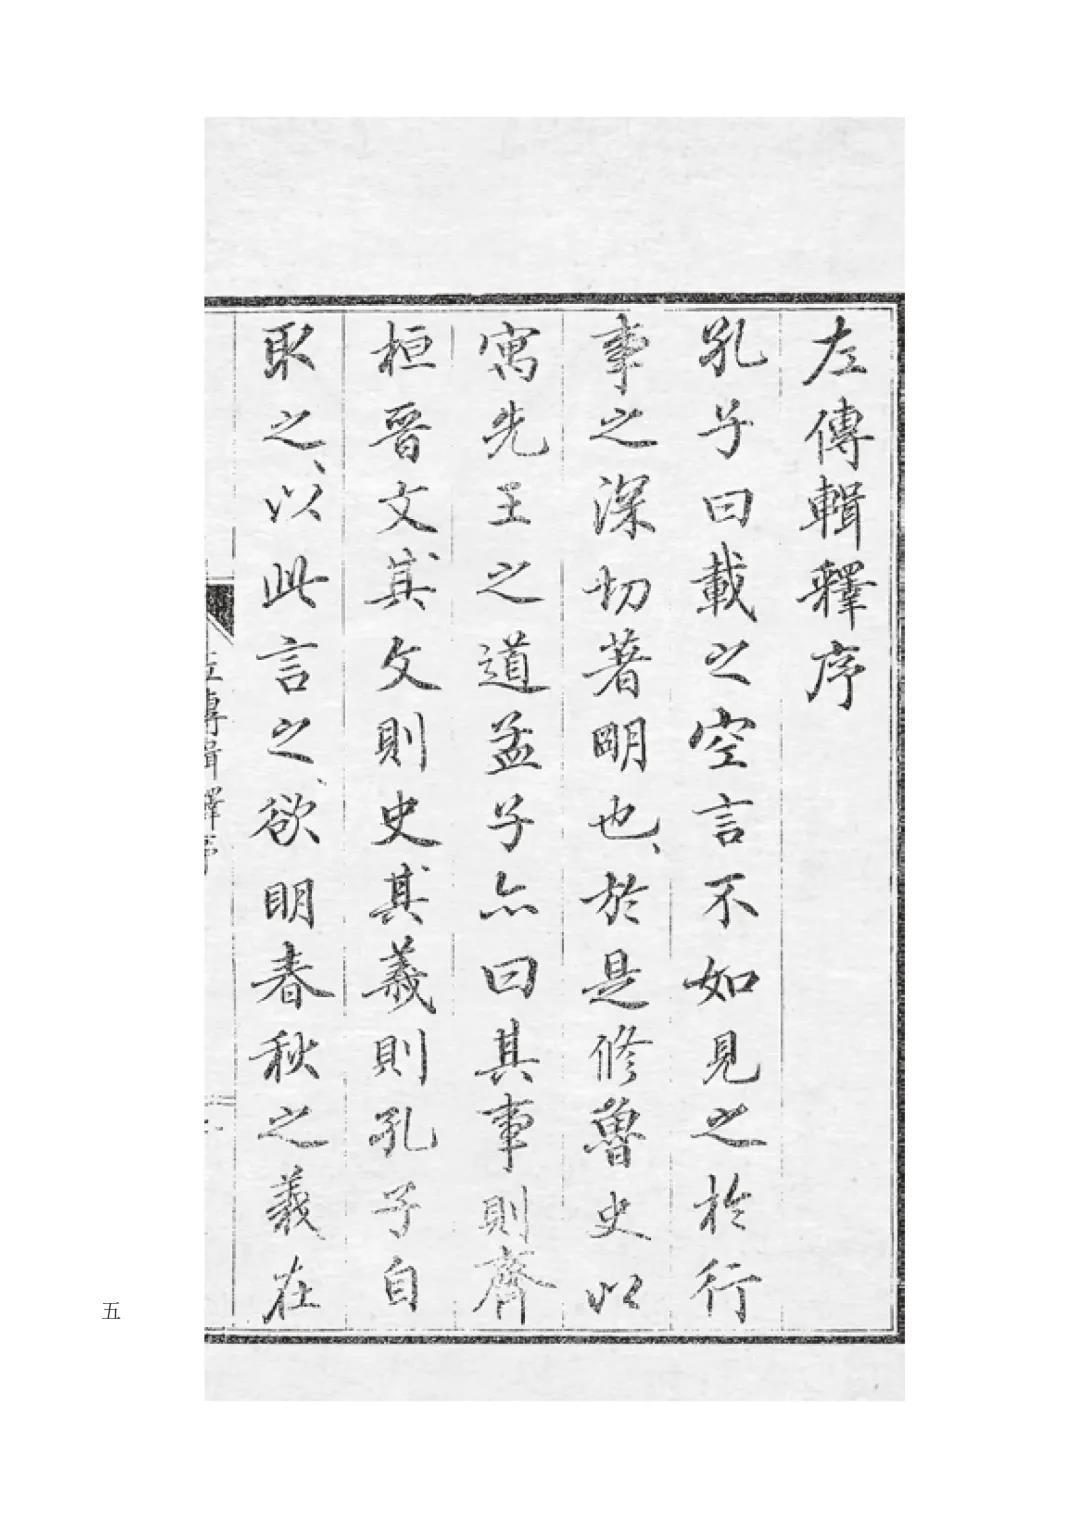 左傳輯釋序
孔子曰載之空言不如見之於行
事之深切著明也、於是修魯史以
寓先王之道孟子亦曰其事則齊
桓晉文其文則史其義則孔子自
取之、以此言之、欲明春秋之義在
左傳輯釋序
五